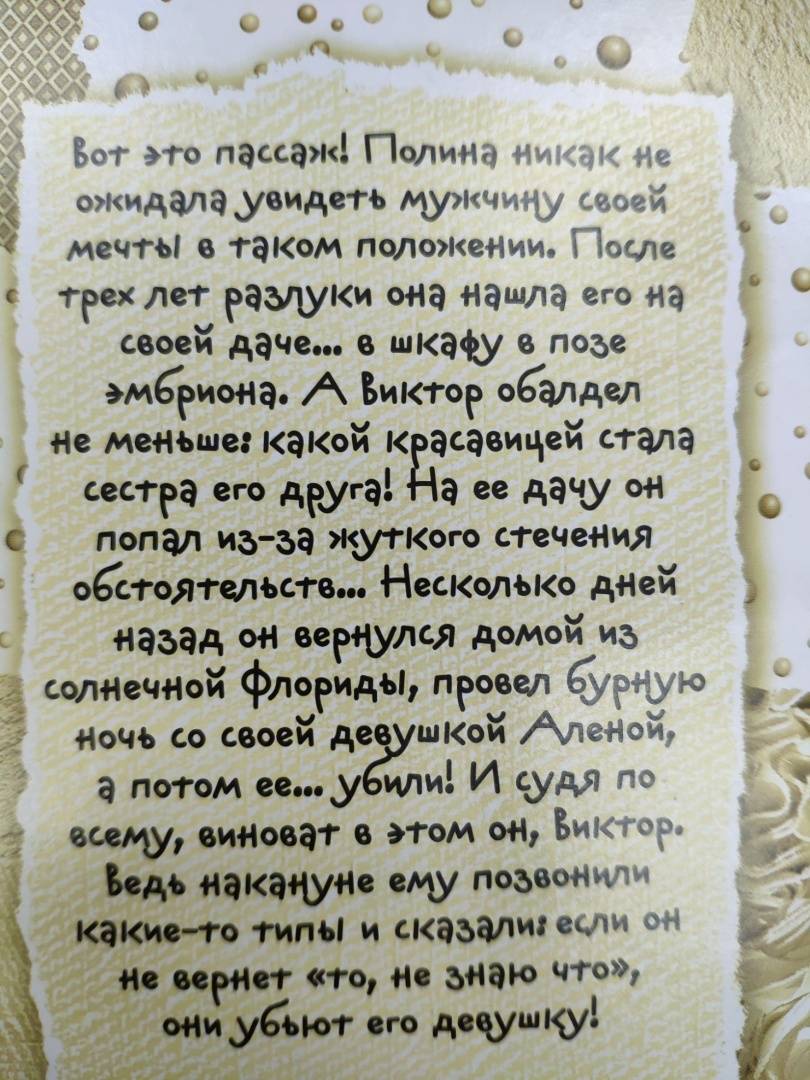 Вот это пассаж! Полина никак не
ожидала увидеть мужчину своей
мечты в таком положении. После
трех лет разлуки она нашла его на
своей даче... в шкафу в позе
эмбриона. А Виктор обалдел
не меньше: какой красавицей стала
сестра его друга! На ее дачу он
попал из-за жуткого стечения
обстоятельств... Несколько дней
назад он вернулся домой из
солнечной Флориды, провел бурную
ночь со своей девушкой Аленой,
а потом ее... убили! И судя по
всему, виноват в этом он, Виктор.
Ведь накануне ему позвонили
какие-то типы и сказали: если он
не вернет «то, не знаю что»,
они убьют его девушку!